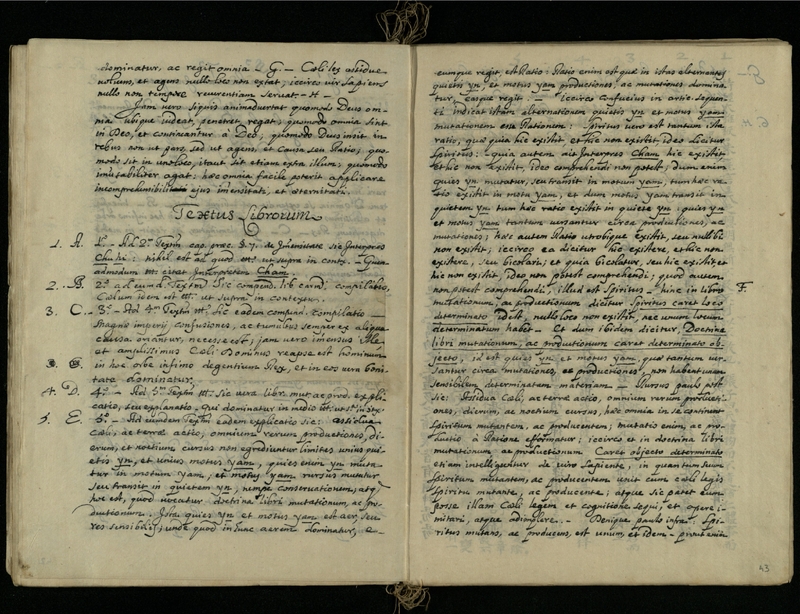 dominatur, ac regit omnia - G. - Cœli lex assidue
volvens, et agens nullo loco non extat; iccirco vir sapiens
nullo non tempore reverentiam servat - H -
Jam vero siquis animadvertat quomodo Deus om-
nia ubique videat, penetret, regat; quomodo omnia sint
in Deo, et contineantur à Deo; quomodo Deus insit in
rebus non ut pars, sed ut agens, et causa, seu Ratio; quo-
modo sit in uno loco, ita ut sit etiam extra illum; quomodo
immutabiliter agat: hæc omnia facile poterit applicare
incomprehensibili ejus immensitati, et æternitati.
Textus Librorum
1. A. 1º - Ad 2m Textum cap. præc. §. 7. de Immensitate sic Interpres
Chu hi: nihil est ad quod &c. ut supra in contx. - Quem
admodum &c. citat Interpretem Cham.
2. B. 2º ad eumd. Textum sic compend. lib. carm. compilatio,
Cœlum idem est &c. ut supra in contextu.
3. C. - 3º - Ad 4m Textum &c. sic eadem compend. compilatio -
Magno imperij confusiones, ac tumultus semper ex aliqua
causa oriantur, necesse est; jam vero immensus ille
et amplissimus Cœli Dominus reapse est hominum
in hoc orbe infimo degentium Rex, et in eos vera boni-
tate dominatur.
4. D. 4º - Ad 5m Textum &c. sic vera libr. mut. ac prod. expli-
catio, seu explanatio, qui dominatur in medio &c. ut
5. E. 5º - Ad eumdem Textum eadem explicatio sic: assidua
cœli, ac terræ actio, omnium rerum productiones, di-
erum, et noctium cursus non egrediuntur limites unius qui-
etis yn, et unius motus yam, quies enim yn muta-
tur in motum yam, et motus yam rursus mutatur
seu transit in quietem yn, nempe conservationem; atque
hoc est, quod vocatur doctrina libri mutationum, ac pro-
ductionum. Ista quies yn et motus yam est aer, seu
res sensibilis; unde quod in hunc aerem dominatur, e-
eumque regit, est Ratio: Ratio enim est quæ in istas alternantes
quietis yn, et motus yam productiones, ac mutationes domina-
tur, easque regit. - iccirco Confucius in artic. sequen-
ti indicat istam alternationem quietis yn et motus yam
mutationem esse Rationem: Spiritus vero est tantum ista
ratio, quæ quia hic existit et hic non existit ideo dicitur
Spiritus: quia autem ait Interpres Cham hic existit
et hic non existit, ideo comprehendi non potest; Dum enim
quies yn mutatur, seu transit in motum yam, tum hæc ra-
tio existit in motu yam, et dum motus yam transit in
quietem yn tum hæc ratio existit in quiete yn; quies yn
et motus yam tantum versantur circa productiones, ac
mutationes; hæc autem Ratio utrobique existit, seu nullibi
non existit; iccirco ea dicitur hic existere, et hic non
existere, seu bicolari; et quia bicolatur, seu hic existit et
hic non existit, ideo non potest comprehendi; quod autem
non potest comprehendi, illud est Spiritus - hinc in libro
mutationum, ac productionum dicitur Spiritus caret loco
determinato id est, nullo loco non existit, nec unum locum
determinatum habet - Et dum ibidem dicitur, Doctrina
libri mutationum, ac productionum caret determinato ob-
jecto, id est quies yn et motus yam, quæ tantum ver-
santur circa mutationes, ac productiones, non habent unam
sensibilem determinatam materiam - Rursus paulo post
sic: Assidua Cœli, ac terræ actio, omnium rerum producti-
ones, dierum, ac noctium cursus, hæc omnia in se continent
Spiritum mutantem, ac producentem; mutatio enim, ac pro-
ductio à Ratione efformatur; iccirco et in doctrina libri
mutationum ac productionum Caret objecto determinato
etiam intelligentur de viro Sapiente, in quantum suum
Spiritum mutantem, ac producentem unit cum cœli legis
Spiritu mutante, ac producente; atque sic patet eum
posse illam Cœli legem et cognitione sequi, et opere i-
mitari, atque adimplere. - Denique paulo infra: Spi-
ritus mutans, ac producens, est unum, et idem - prout enim
F.
43